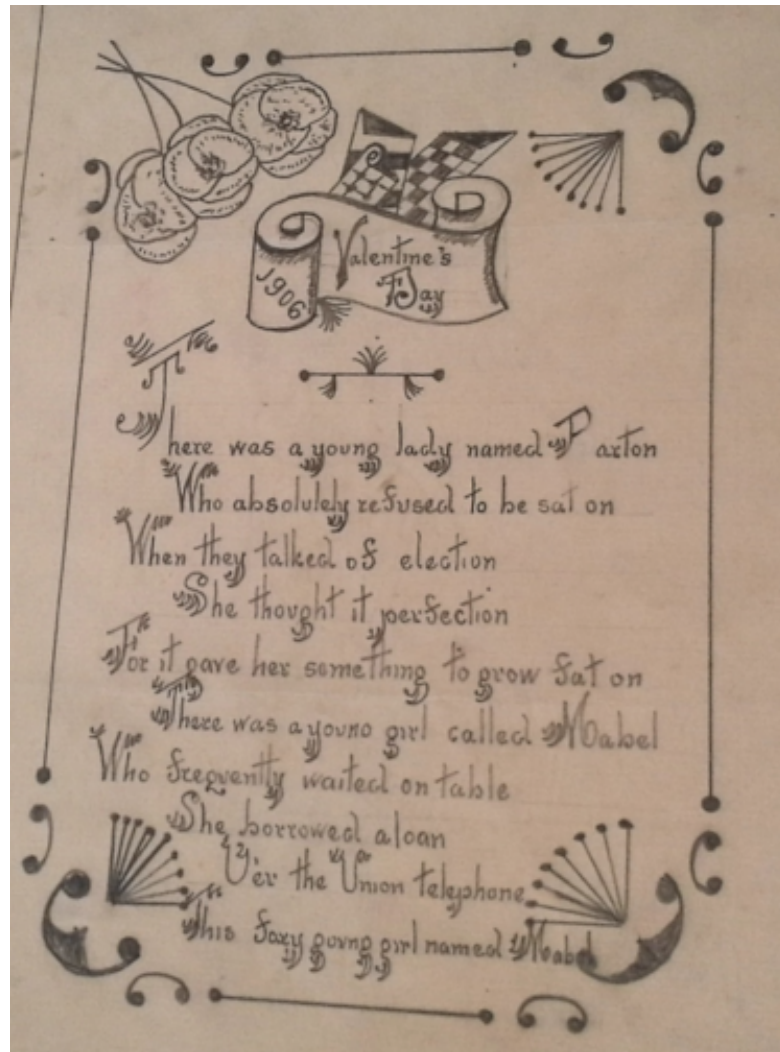 1906
Valentine's
Day
There was a young lady named Paxton
Who absolulely refused to be sat on
When they talked of election
She thought it perfection
For it gave her something to grow fat on
There was a young girl called Mabel
Who frequently waited on table
She borrowed a loan
O'er the Union telephone
This foxy young girl named Mabel